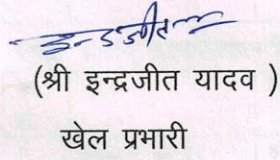 इन्द्रजीत
(श्री इन्द्रजीत यादव )
खेल प्रभारी